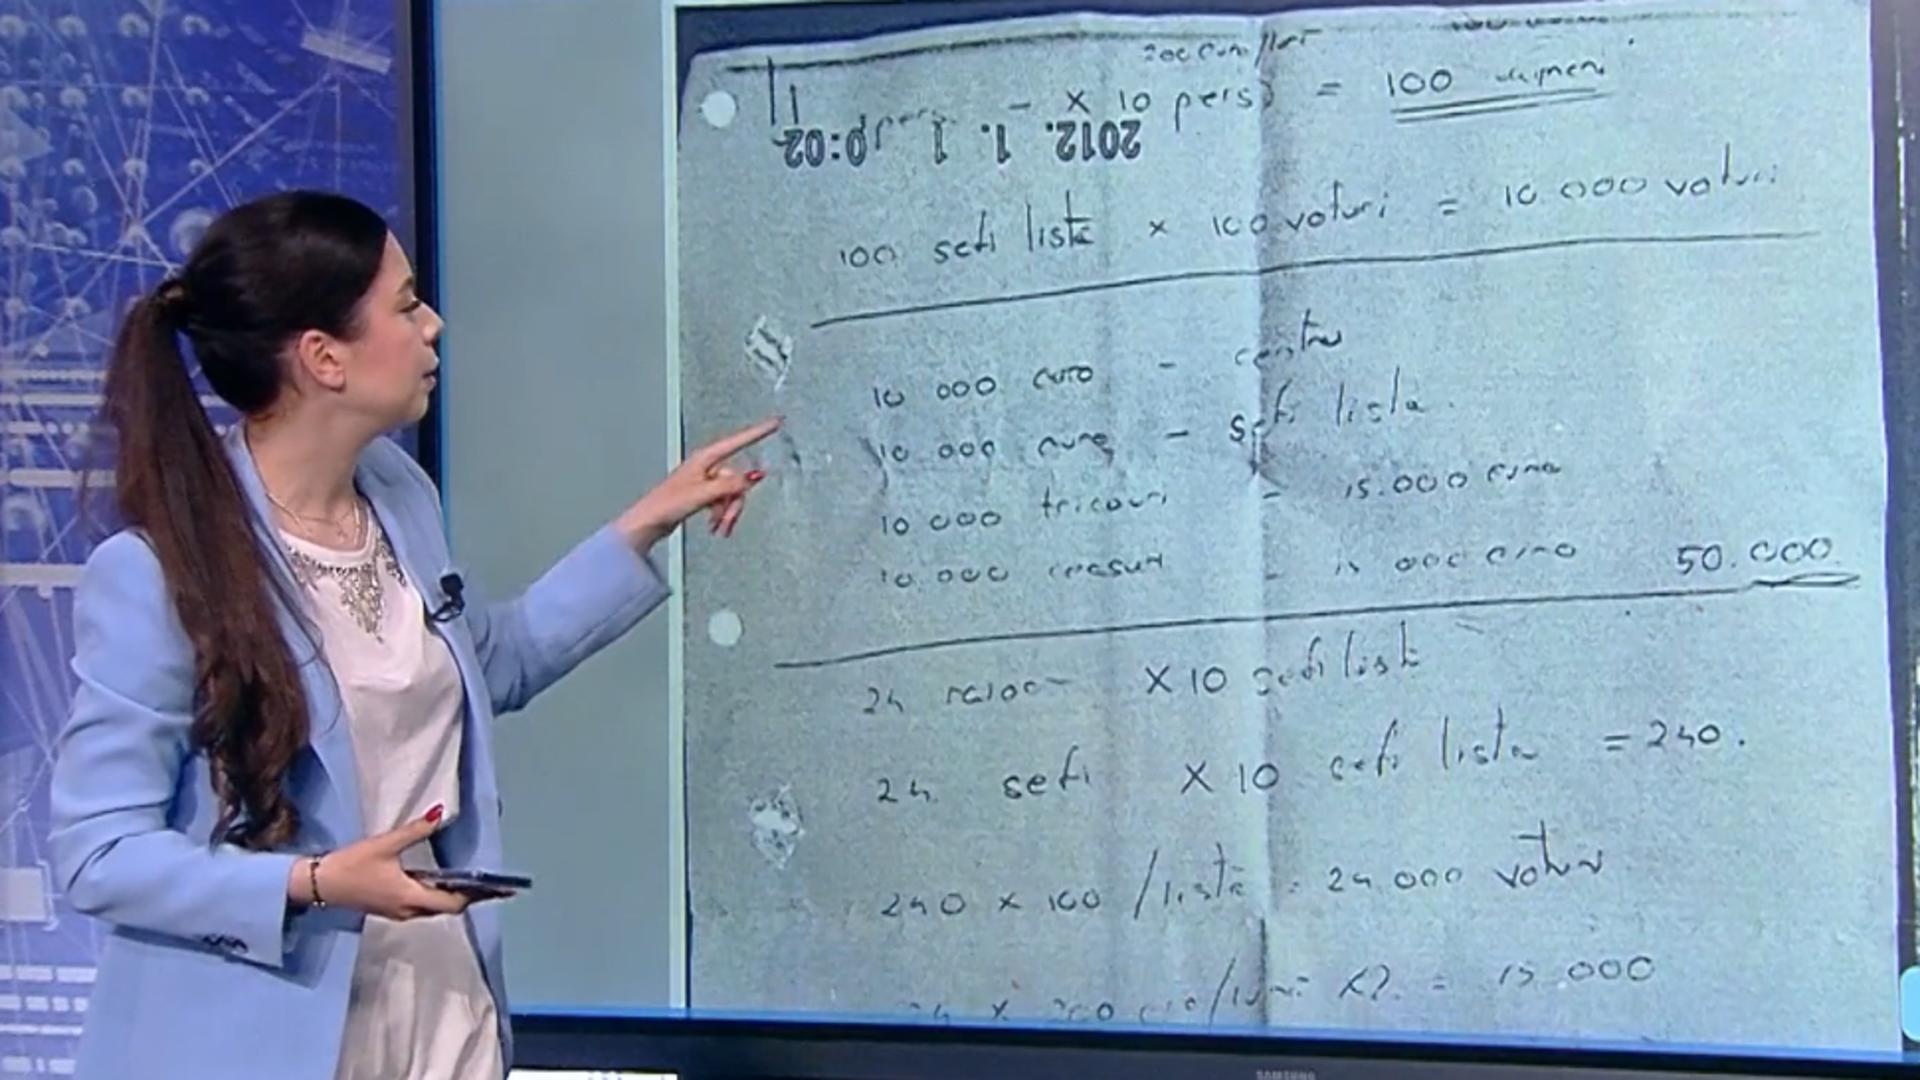 200 euro / luni
- x 10 pers = 100
2012. 1. 1 0:02
100 sefi listă x 100 voturi = 10 000 voturi
10 000 euro - centru
10 000 euro - sefi lista
10 000 tricouri - 15.000 euro
10.000 - 15 000 euro 50.000
24 X 10 sefi lista
24 sefi X 10 sefi lista = 240.
240 x 100 / listă = 24 000 voturi
24 x 200 euro/luni x2. = 15 000
SAMSUNG